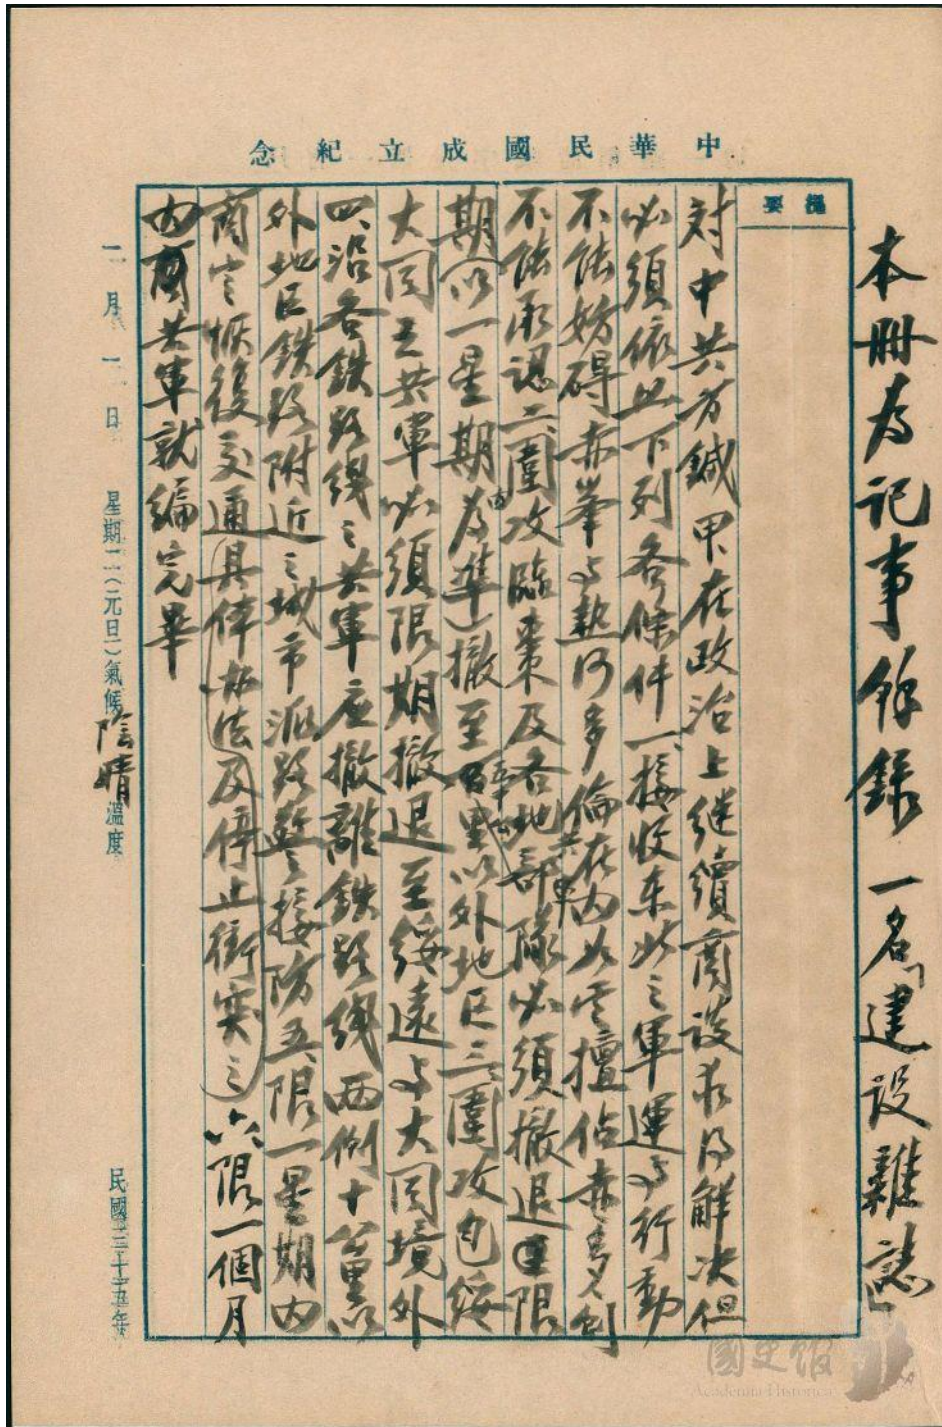 中華民國成立紀念
本冊為記事餘錄 一名「建設雜誌」
提要
對中共方鍼 甲、在政治上繼續商談求得解決但
必須依照下列各條件一、接收東北之軍運與行動
不能妨碍赤峯與熱河多倫在內共軍如它擅佔赤多則
不能承認二、圍攻臨棗及各地部隊必須撤退限
期(以一星期內為準)撤至里以外地区三、圍攻包綏
大同之共軍必須限期撤退至綏遠與大同境外
四、沿各鉄路綫之共軍应撤離鉄路綫兩側十公里以
外地区鉄路附近之城市派路警接防五、限一星期內
商定恢復交通具体办法(及停止衝突)六、限一個月
內共軍就編完畢
一月一日 星期二(元旦)氣候 陰晴 溫度 民國三十五年
國史館
Academia Historica